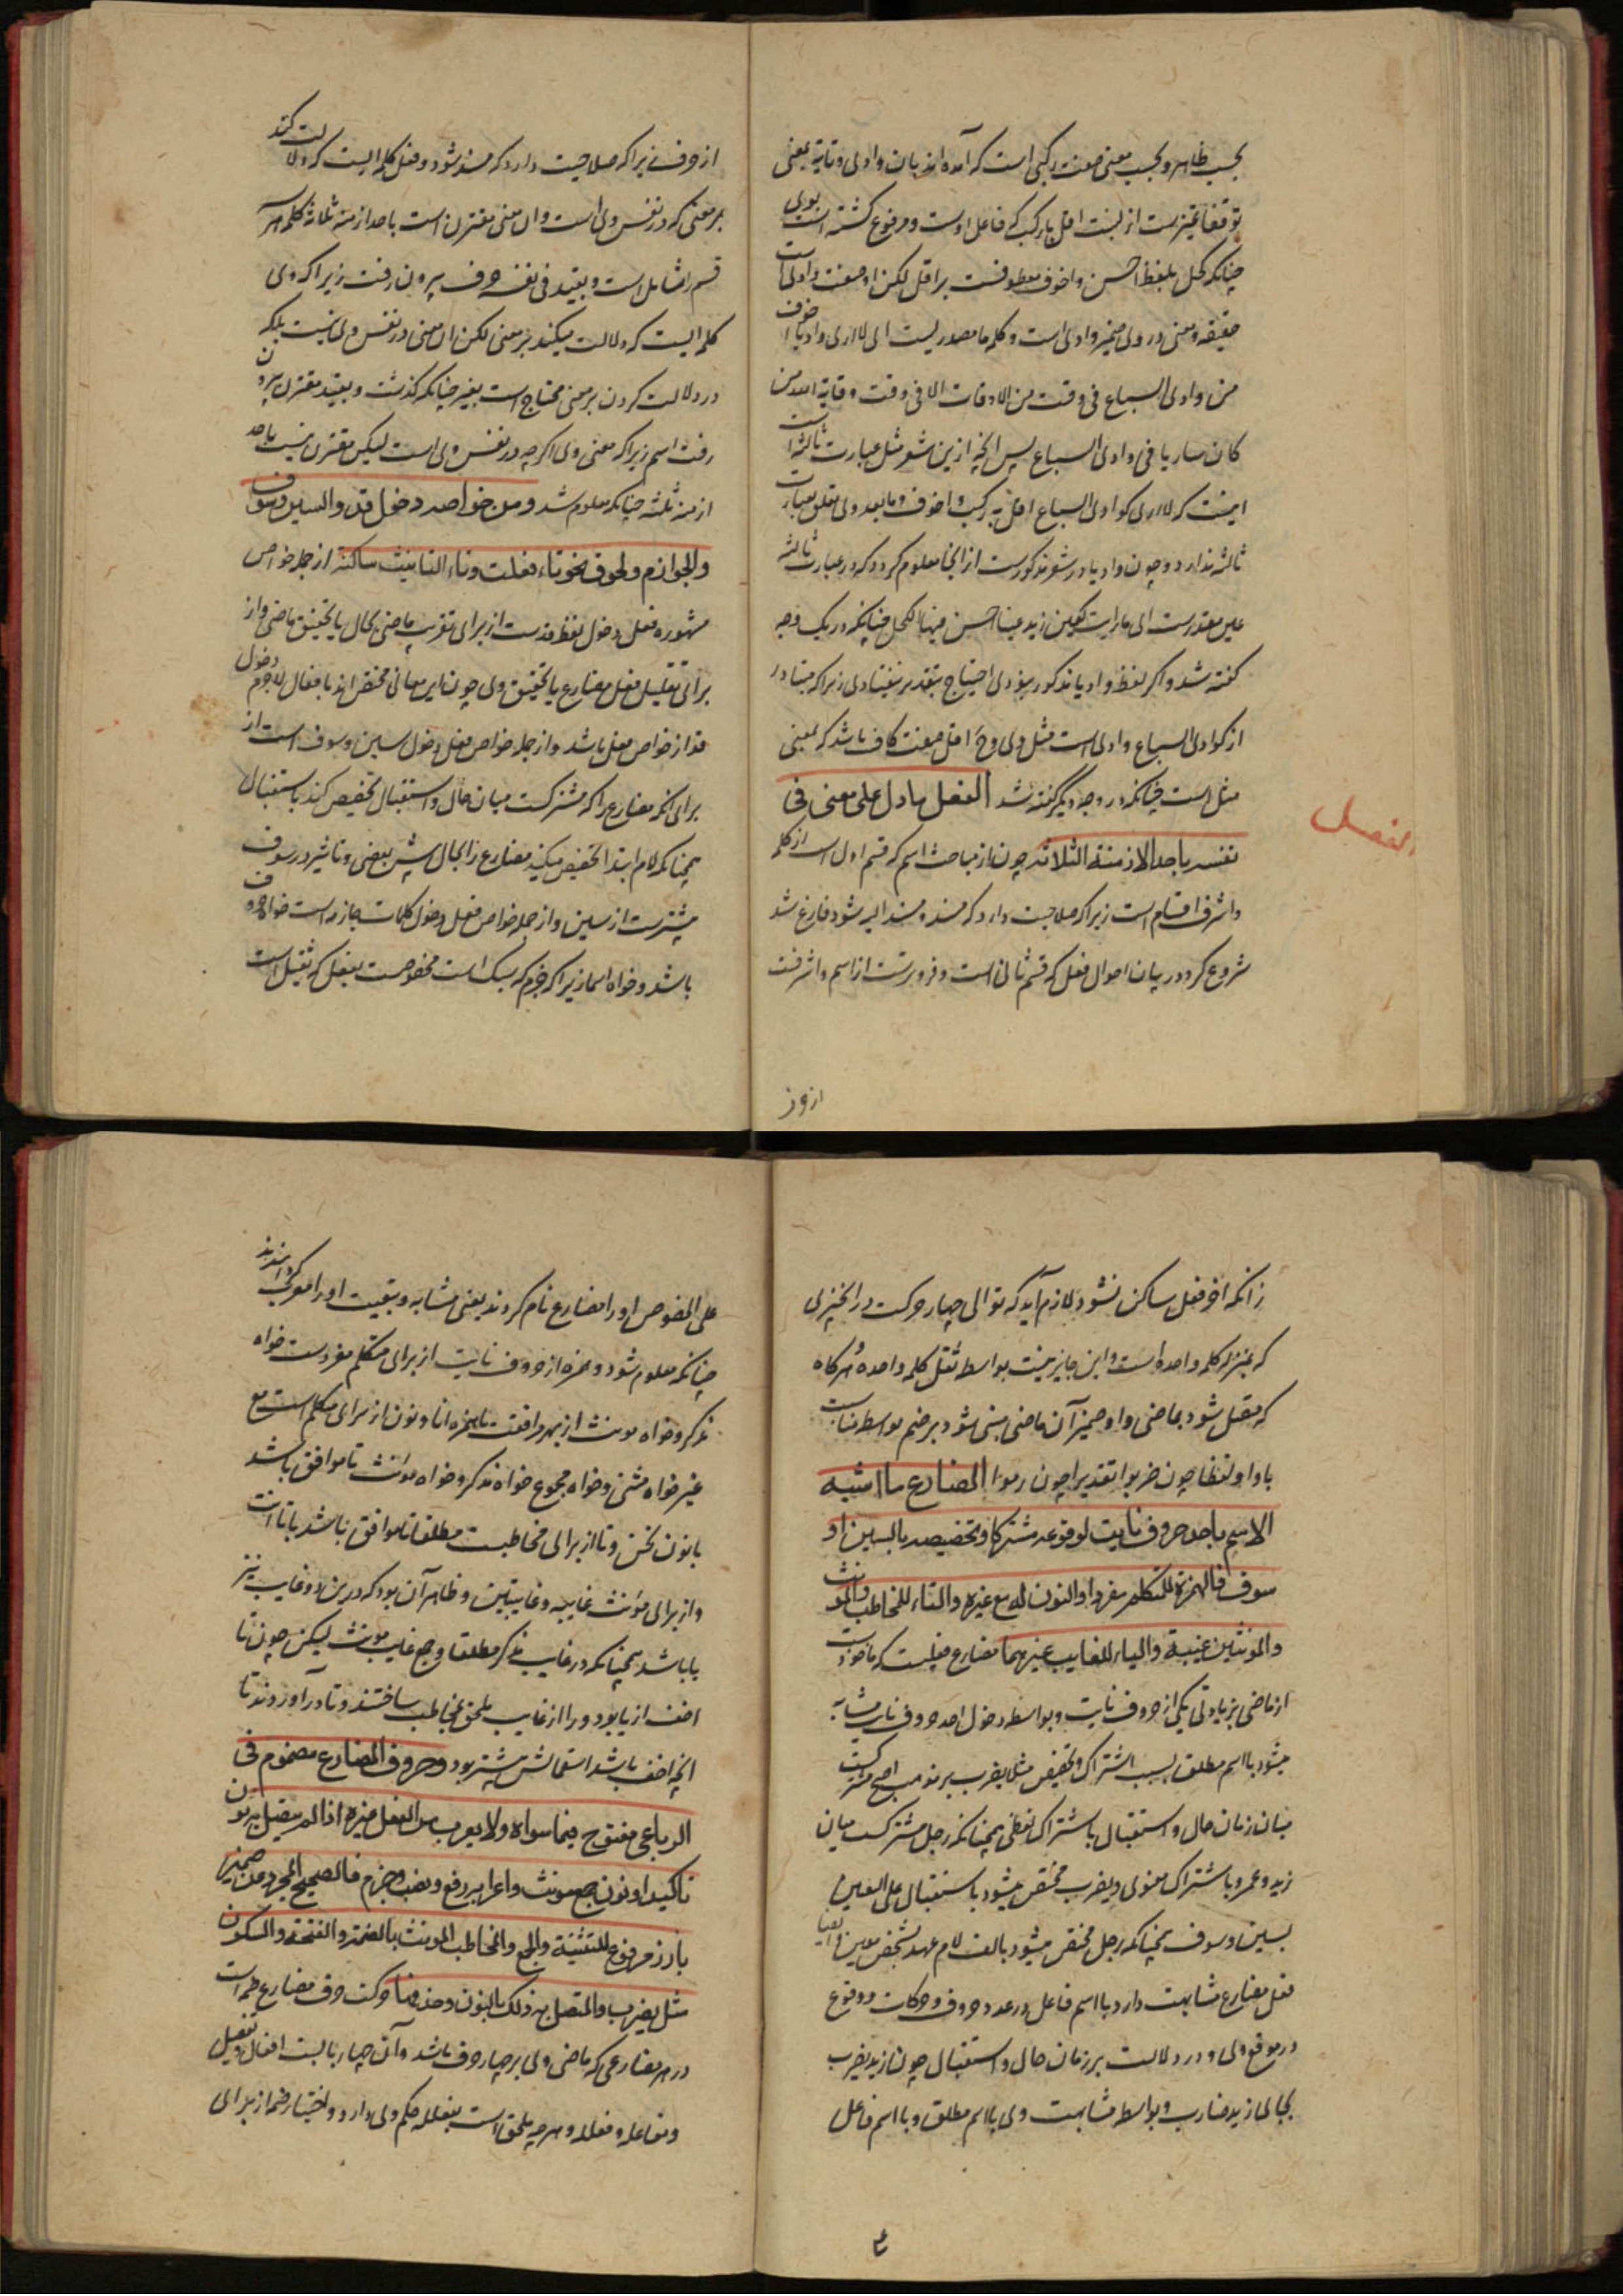 بحسب ظاهر و بحسب معنی صفت رکبی است که آمده اند بان وادی و تایة بمعنی
توقفا تمیزست از نسبت اقل بارکب که فاعل اوست و مرفوع کشته است بوی
چنانکه کحل بلفظ احسن و اخوف معطوفست بر اقل لکن او صفت وادی است
حقیقه و معنی در وی ضمیر وادی است و کلمه ما مصدریست ای لا اری وادیا اخوف
من وادی السباع فی وقت من الاوقات الا فی وقت وقایة الله من
کان ساریا فی وادی السباع پس انچه ازین شعر مثل عبارت ثالثه است
اینست که لا اری کوادی السباع اقل به رکب و اخوف و ما بعد وی تعلق بعبارت
ثالثه ندارد و چون وادیا در شعر مذکورست از انجا معلوم کردد که در عبارت ثالثه
عین مقدرست ای ما رایت کعین زید عینا احسن فیها الکحل چنانکه در یک وجه
کفته شد و اکر لفظ وادیا مذکور نبودی احتیاج بتقدیر نیفتادی زیرا که متبادر
از کوادی السباع وادی است مثل وی و ح اقل صفت کاف باشد که بمعنی
مثل است چنانکه در وجه دیگر کفته شد الفعل ما دل علی معنی فی
نفسه باحد الازمنة الثلاثه چون از مباحث اسم که قسم اول است از کلمه
و اشرف اقسام است زیرا که صلاحیت دارد که مسند و مسند الیه شود فارغ شد
شروع کرد در بیان احوال فعل که قسم ثانی است و فروترست از اسم و اشرفست
الفعل
از حرف زیرا که صلاحیت دارد که مسند شود و فعل کلمه ایست که دلالت کند
بر معنی که در نفس وی است و ان معنی مقترن است باحد ازمنه ثلاثه کلمه هر سه
قسم را شامل است و بقید فی نفسه حرف بیرون رفت زیرا که وی
کلمه ایست که دلالت میکند بر معنی لکن ان معنی در نفس وی نیست بلکه
در دلالت کردن بر معنی محتاج است بغیر چنانکه کذشت و بقید مقترن بیرون
رفت اسم زیرا که معنی وی اکرچه در نفس وی است لیکن مقترن نیست باحد
ازمنه ثلثه چنانکه معلوم شد و من خواصه دخول قد والسین وسوف
والجوازم ولحوق نحو تاء فعلت وتاء التانیث ساکنة از جمله خواص
مشهوره فعل دخول لفظ قدست از برای تقریب ماضی بحال یا تحقیق ماضی و از
برای تقلیل فعل مضارع یا تحقیق وی چون این معانی مختص اند بافعال لاجرم دخول
قد از خواص فعل باشد و از جمله خواص فعل دخول سین و سوف است از
برای انکه مضارع را که مشترکست میان حال و استقبال تخصیص کند باستقبال
همچنانکه لام ابتدا تخصیص میکند مضارع را بحال پیش بعضی و تاثیر در سوف
بیشترست از سین و از جمله خواص فعل دخول کلمات جازمه است خواه حروف
باشد و خواه اسما زیرا که جزم که سبک است مخصوصست بفعل که ثقیل است
زانکه اخر فعل ساکن نشود لازم آید که توالی چهار حرکت در انچیزی
که بمنزله کلمه واحده است و این جایز نیست بواسطه ثقل کلمه واحده و هرکاه
که متصل شود بماضی واو ضمیر آن ماضی مبنی شود بر ضم بواسطه مناسبت
با واو لفظا چون ضربوا تقدیرا چون رموا المضارع ما اشبه
الاسم باحد حروف نایت لوقوعه مشترکا وتخصیصه بالسین او
سوف فالهمزة للمتکلم مفردا والنون له مع غیره والتاء للمخاطب والمونث
والمونثین غیبة والیاء للغایب غیرهما مضارع فعلیست که ماخوذست
از ماضی بزیادتی یکی از حروف نایت و بواسطه دخول احد حروف نایت مشابه
میشود با اسم مطلق بسبب اشتراک و تخصیص مثلا یضرب بر مذهب اصح مشترکست
میان زمان حال و استقبال باشتراک لفظی همچنانکه رجل مشترکست میان
زید و عمرو باشتراک معنوی و یضرب مختص میشود باستقبال علی التعیین
بسین و سوف همچنانکه رجل مختص میشود بالف لام عهد بشخص معین و ایضا
فعل مضارع مشابهت دارد با اسم فاعل در عدد حروف و حرکات و وقوع
در موقع وی و در دلالت بر زمان حال و استقبال چون زید یضرب
بجای زید ضارب و بواسطه مشابهت وی با اسم مطلق و با اسم فاعل
علی الخصوص او را مضارع نام کردند یعنی مشابه و بقیت او را معرب کردانیدند
چنانکه معلوم شود و همزه از حروف نایت از برای متکلم مفردست خواه
مذکر و خواه مونث از بهر موافقت با همزه انا و نون از برای متکلم است مع
غیر خواه مثنی و خواه مجموع خواه مذکر و خواه مؤنث تا موافق باشد
با نون نحن و تا از برای مخاطبست مطلقا تا موافق باشد با تا انت
و از برای مؤنث غایبه و غایبتین و ظاهر آن بود که درین دو غایب نیز
یا باشد همچنانکه در غایب مذکر مطلقا و جمع غایب مونث لیکن چون تا
اخف از یا بود ورا از غایب ملحق بمخاطب ساختند و تا درآوردند تا
انچه اخف باشد استعمالش بیشتر بود و حروف المضارع مضموم فی
الرباعی مفتوح فیما سواه ولا یعرب من الفعل غیره اذا لم یتصل به نون
تاکید او نون جمع مونث واعرابه رفع ونصب وجزم فالصحیح المجرد عن ضمیر
بارز مرفوع للتثنیة والجمع والمخاطب المونث بالضمة والفتحة والسکون
مثل یضرب والمتصل به ذلک بالنون وحذفها حرکت حرف مضارع ضمه است
در هر مضارعی که ماضی وی بر چهار حرف باشد و آن چهار بابست افعال و تفعیل
و مفاعله و فعلله و هرچه ملحق است بفعلله حکم وی دارد و اختیار ضم از برای